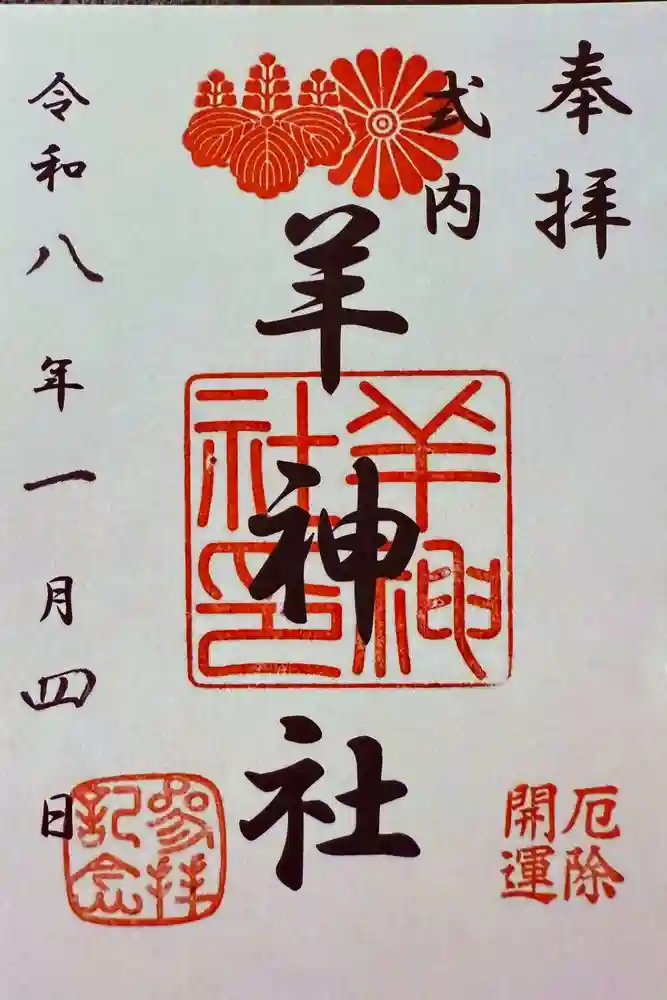 奉拝
式内
羊神社
羊神社印
厄除
開運
令和八年一月四日
参拝
記念